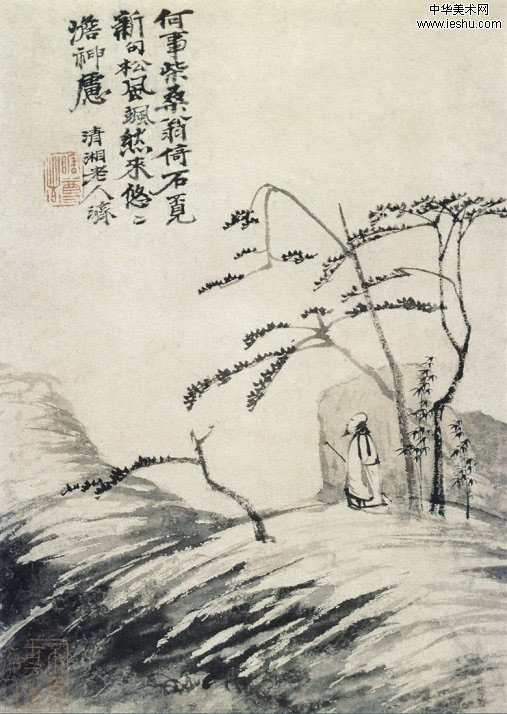 中华美术网
www.ieshu.com
何事柴桑翁倚石覓
新句松風颯然來悠〻
澹神慮
清湘老人濟